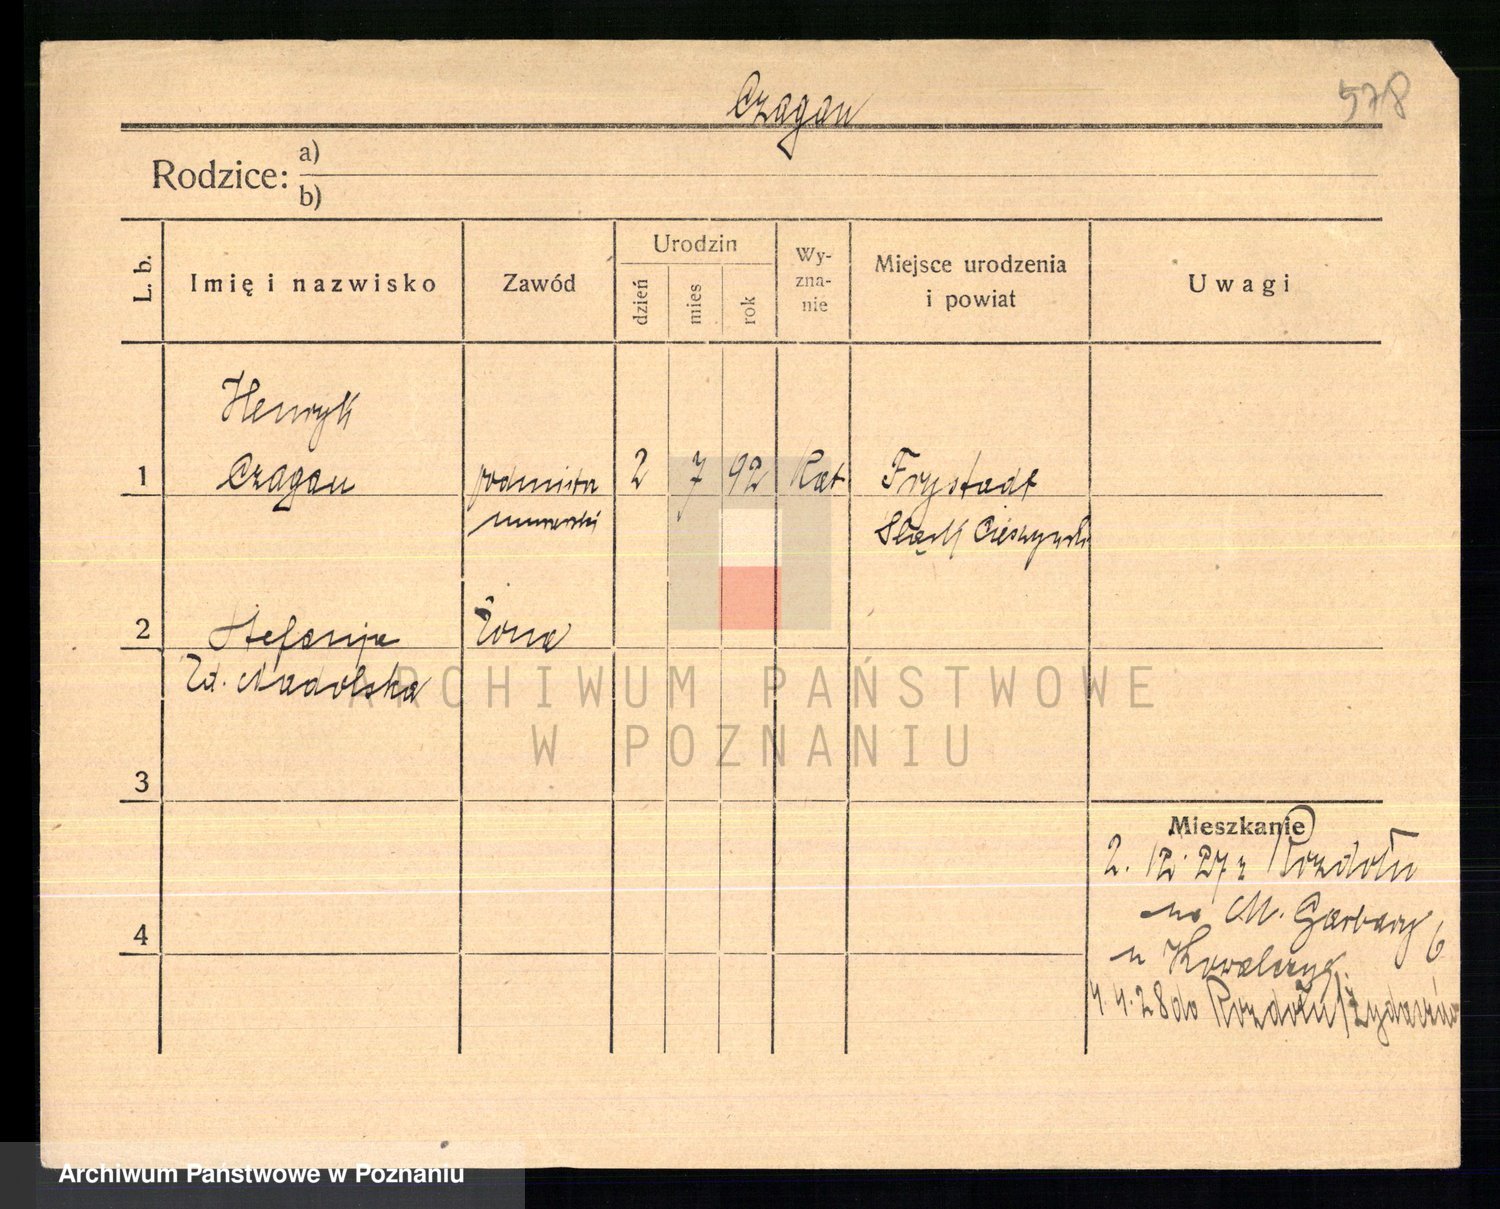 Czagan
578
Rodzice: a)
b)
L. b.
Imię i nazwisko
Zawód
Urodzin
dzień
mies
rok
Wy-
zna-
nie
Miejsce urodzenia
i powiat
Uwagi
Henryk
1 Czagan podmistrz 2 7 92 Kat Frysztadt
murarski Śląsk Cieszyński
2 Stefanja Żona
Zd. Nadolska
3
4
Mieszkanie
2. 12. 27 z Rozdołu
na M. Garbary 6
u Kowalczyk.
4. 4. 28 do Rozdołu/Żydaczów
ARCHIWUM PAŃSTWOWE
W POZNANIU
Archiwum Państwowe w Poznaniu